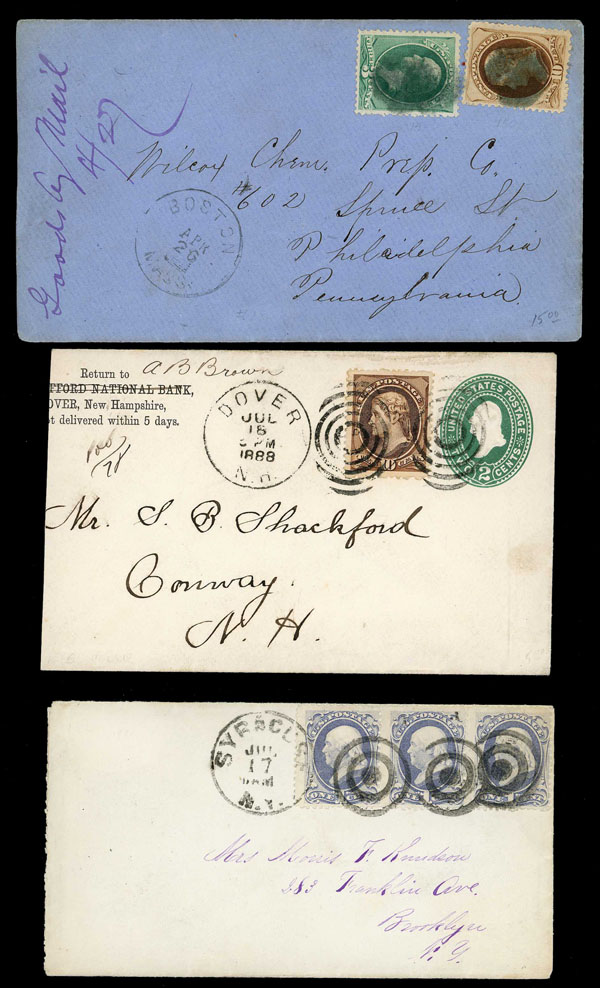 Goods by Mail
4/27
Wilcox Chem. Prep. Co.
#602 Spruce St
Philadelphia
Pennsylvania.
BOSTON
APR
26
MASS.
15.00
Return to A B Brown
FFORD NATIONAL BANK,
OVER, New Hampshire,
t delivered within 5 days.
DOVER
JUL
16
5 PM
1888
N.H.
U.S. POSTAGE
UNITED STATES POSTAGE
2
CENTS
Mr. S. B. Shackford
Conway.
N. H.
SYRACUSE
JUL
17
AM
N.Y.
U.S. POSTAGE
ONE
Mrs Morris F. Knudson
283 Franklin Ave.
Brooklyn
N. Y.